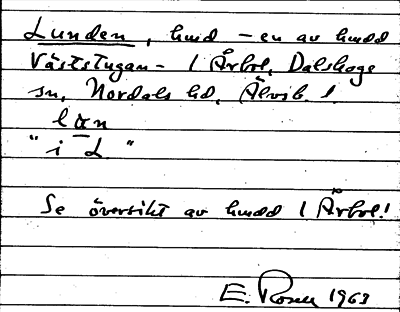 Lunden, hmd - en av hmdd
Väststugan - i Årbol, Dalskogs
sn, Nordals hd, Älvsb. l.
lα̲n
"i L"
Se översikt av hmdd i Årbol!
E. Rosell 1963